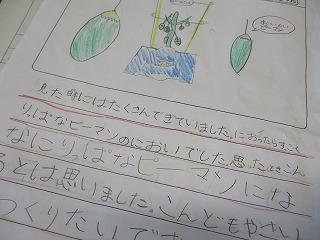 見た時にはたくさんできていました。においったらすごく
りっぱなピーマンのにおいでした。思ったよきこん
なにりっぱなピーマンにな
るとは思いました。こんどもやさい
つくりたいです